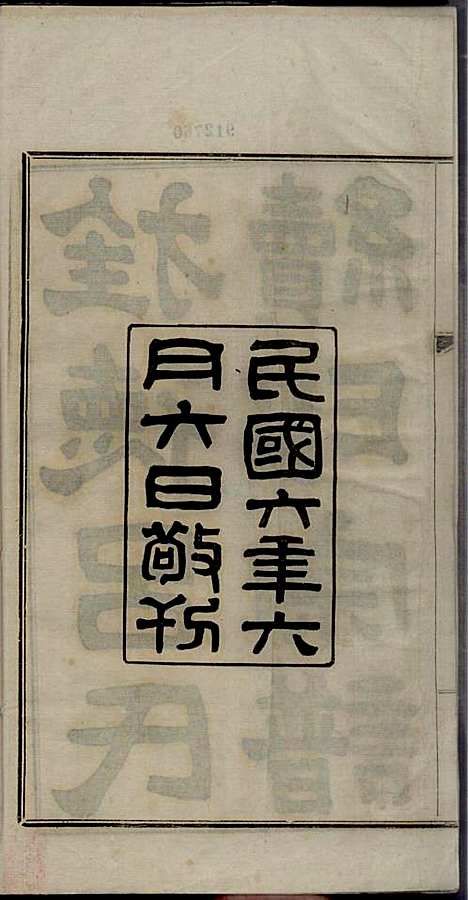 民國六年六
月六日敬刊
912760